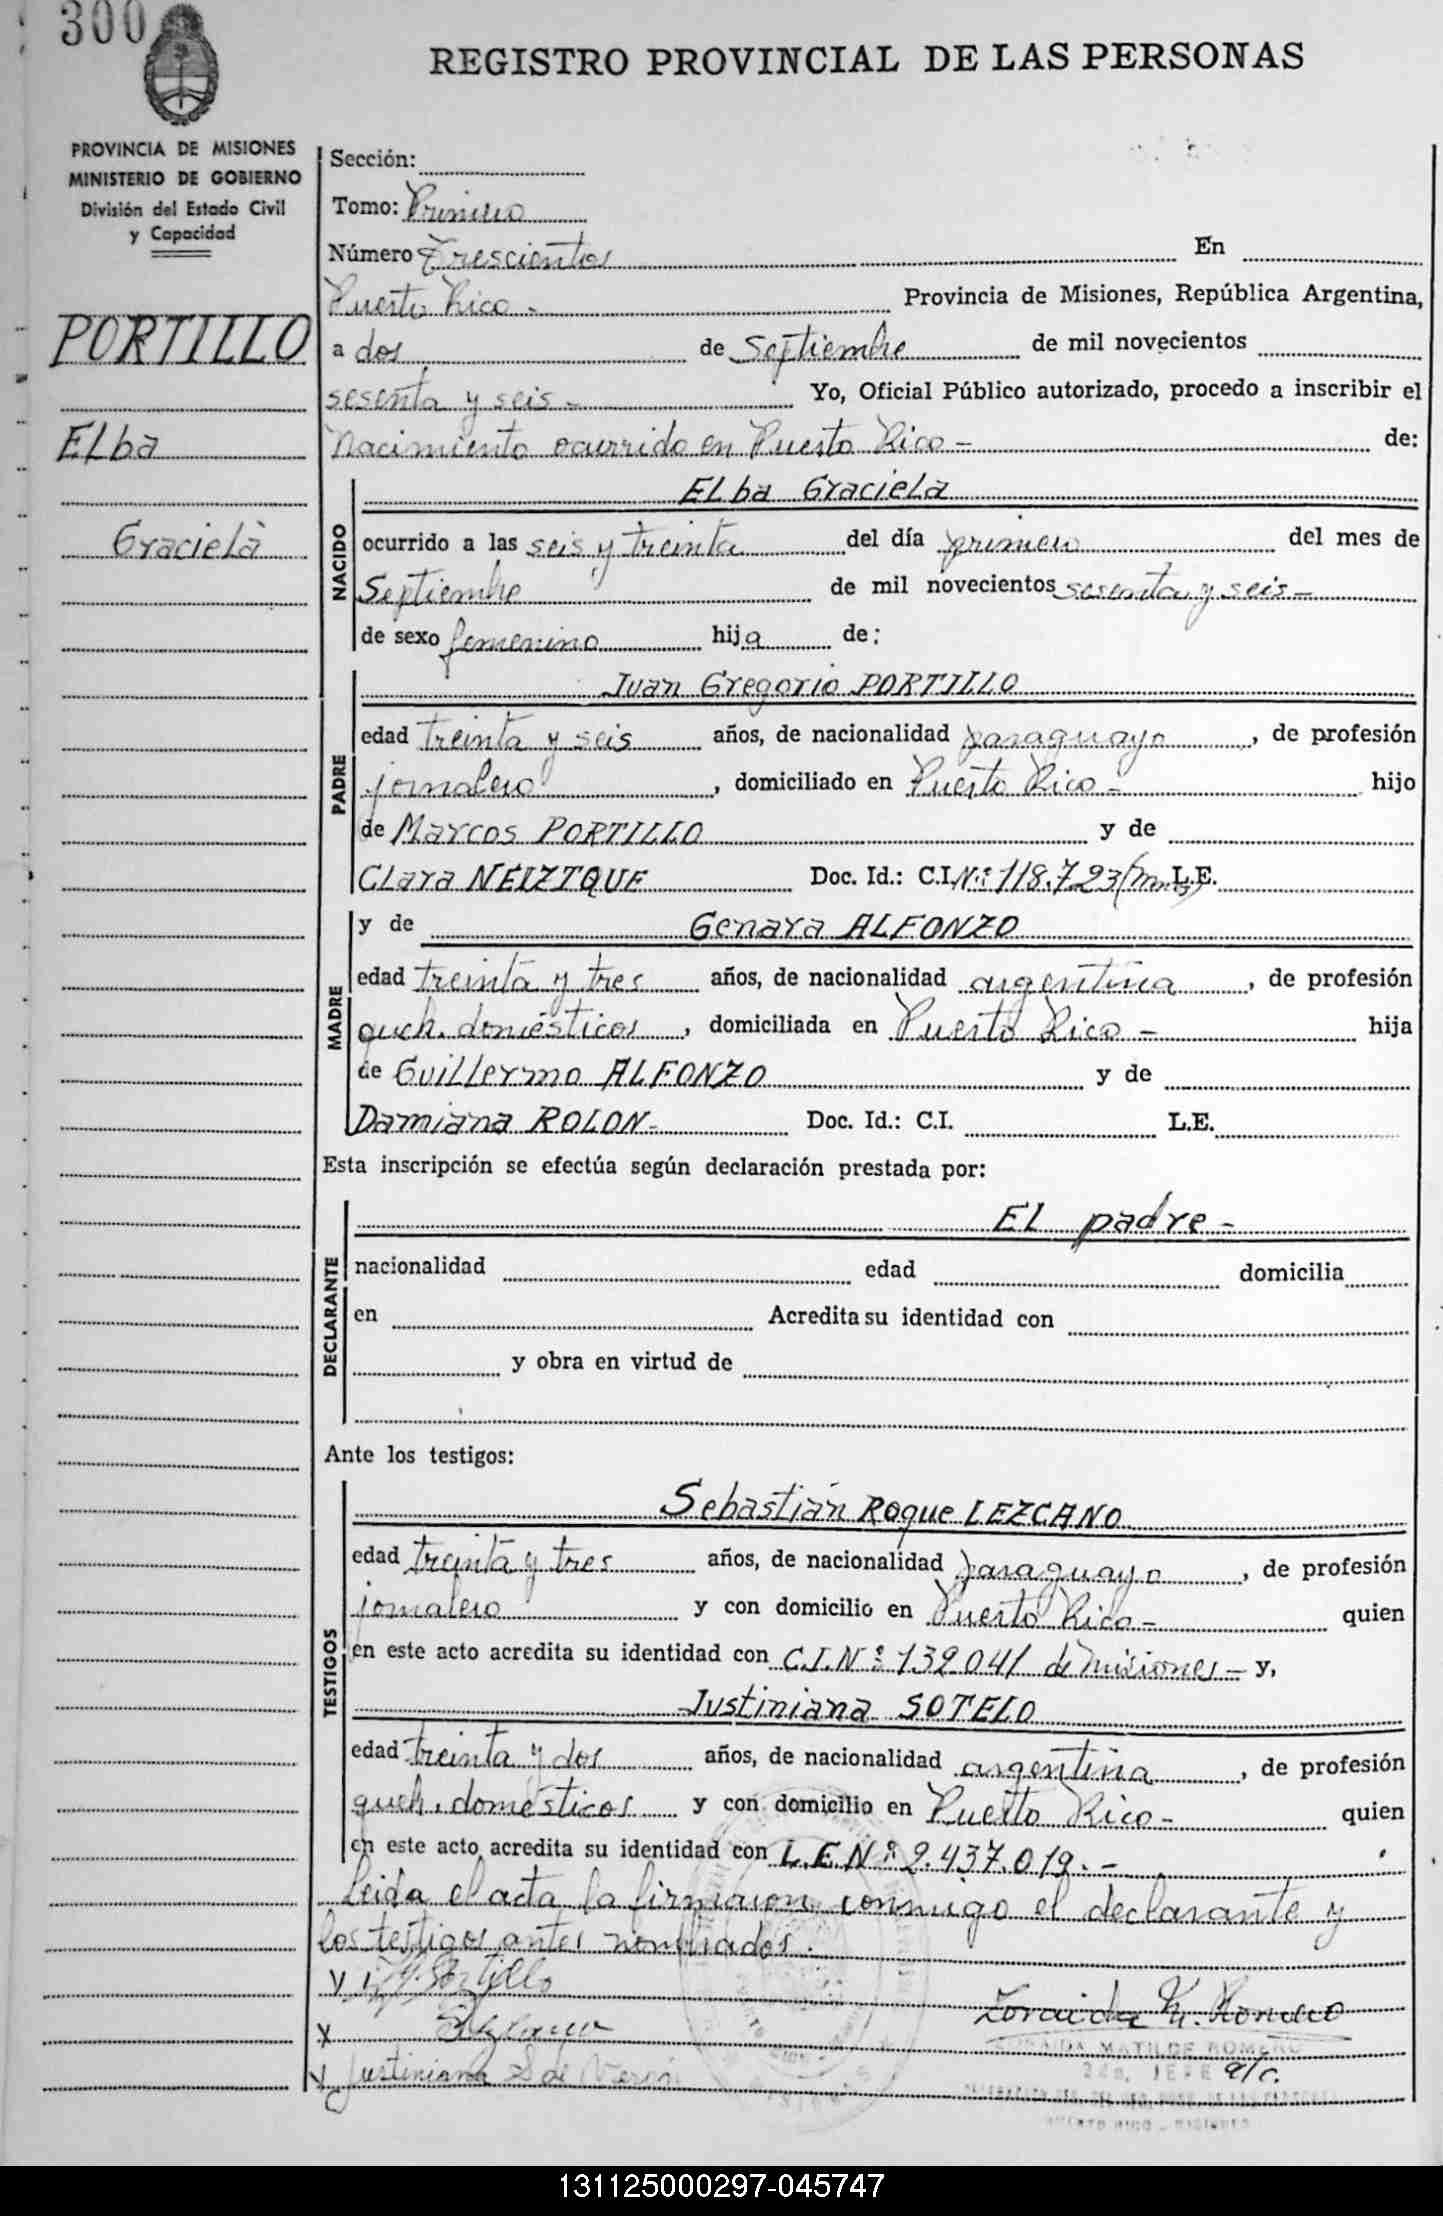 300
REGISTRO PROVINCIAL DE LAS PERSONAS
PROVINCIA DE MISIONES
MINISTERIO DE GOBIERNO
División del Estado Civil
y Capacidad
PORTILLO
ELba
Graciela
Sección:
Tomo: Primero
Número Trescientos En
Puerto Rico - Provincia de Misiones, República Argentina,
a dos de Septiembre de mil novecientos
sesenta y seis - Yo, Oficial Público autorizado, procedo a inscribir el
Nacimiento ocurrido en Puerto Rico - de:
NACIDO
ELba Graciela
ocurrido a las seis y treinta del día primero del mes de
Septiembre de mil novecientos sesenta y seis -
de sexo femenino hija de:
PADRE
Juan Gregorio PORTILLO
edad treinta y seis años, de nacionalidad paraguayo, de profesión
jornalero, domiciliado en Puerto Rico - hijo
de Marcos PORTILLO y de
Clara Doc. Id.: C.I. Nº 118.723 L.E.
MADRE
y de Genara ALFONZO
edad treinta y tres años, de nacionalidad argentina, de profesión
queh. domésticos, domiciliada en Puerto Rico - hija
de Guillermo ALFONZO y de
Damiana ROLON - Doc. Id.: C.I. L.E.
Esta inscripción se efectúa según declaración prestada por:
DECLARANTE
EL padre -
nacionalidad edad domicilia
en Acredita su identidad con
y obra en virtud de
Ante los testigos:
TESTIGOS
Sebastián Roque LEZCANO
edad treinta y tres años, de nacionalidad paraguayo, de profesión
jornalero y con domicilio en Puerto Rico - quien
en este acto acredita su identidad con C.I. Nº 139041 de Misiones - y,
Justiniana SOTELO
edad treinta y dos años, de nacionalidad argentina, de profesión
queh. domésticos y con domicilio en Puerto Rico - quien
en este acto acredita su identidad con L.E. Nº 2.437.019.-
Leida el acta la firmaron conmigo el declarante y
los testigos antes nombrados.
x Portillo
x
x Justiniana S de
Zoraida M. Romero
ZORAIDA MATILDE ROMERO
2da. JEFE a/c.
PUERTO RICO - MISIONES
131125000297-045747